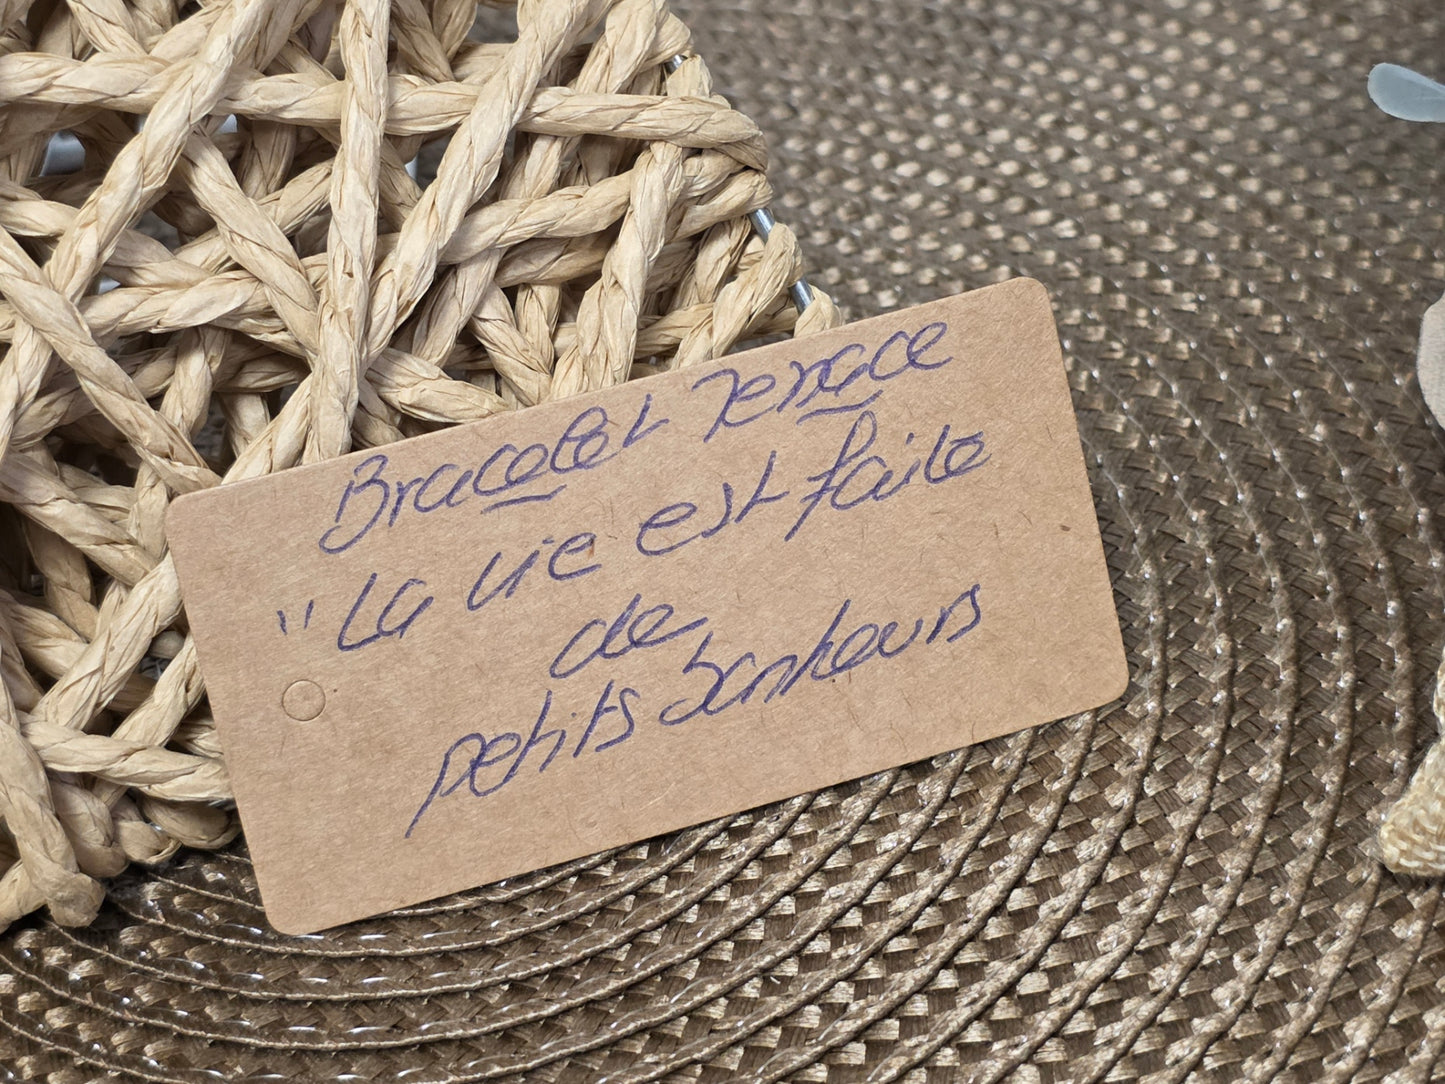 Bracelet Tenace
"La vie est faite
de
petits bonheurs